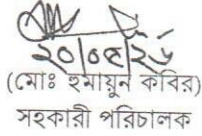 ২০/০৫/২৬
(মোঃ হুমায়ুন কবির)
সহকারী পরিচালক